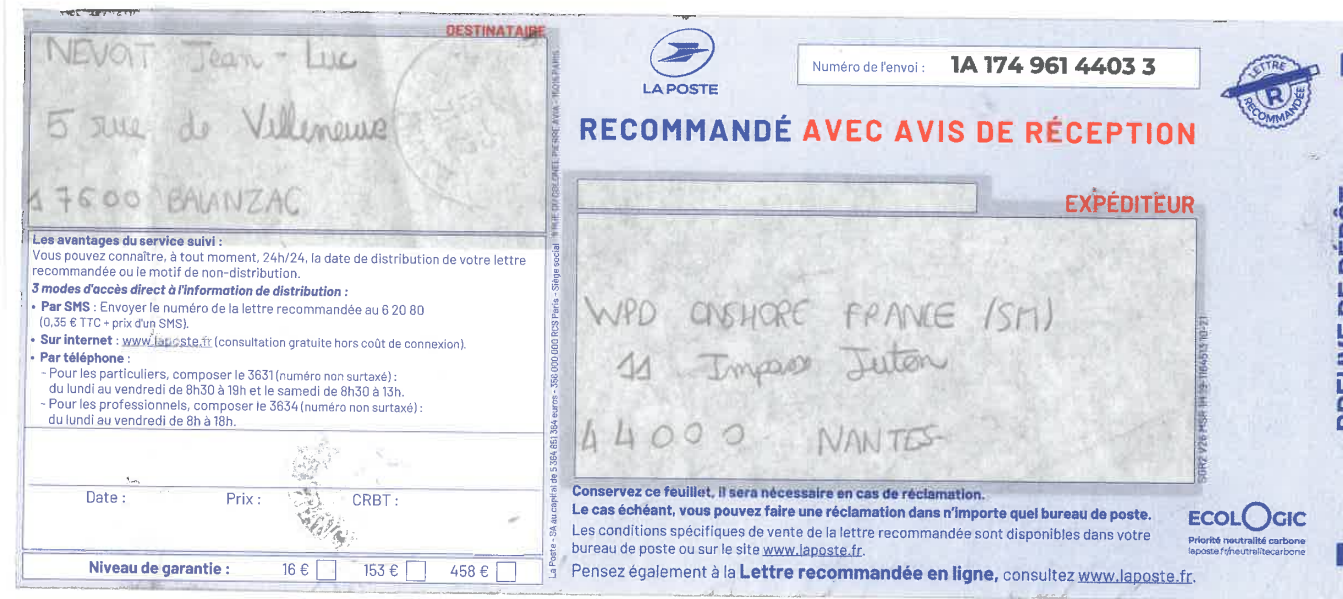 DESTINATAIRE
NEVOIT Jean-Luc
5 rue de Villeneuve
17600 BALANZAC
Les avantages du service suivi :
Vous pouvez connaître, à tout moment, 24h/24, la date de distribution de votre lettre
recommandée ou le motif de non-distribution.
3 modes d'accès direct à l'information de distribution :
• Par SMS : Envoyer le numéro de la lettre recommandée au 6 20 80
(0,35 € TTC + prix d'un SMS).
• Sur internet : www.laposte.fr (consultation gratuite hors coût de connexion).
• Par téléphone :
- Pour les particuliers, composer le 3631 (numéro non surtaxé) :
du lundi au vendredi de 8h30 à 19h et le samedi de 8h30 à 13h.
- Pour les professionnels, composer le 3634 (numéro non surtaxé) :
du lundi au vendredi de 8h à 18h.
Date : Prix : CRBT :
Niveau de garantie : 16 € 153 € 458 €
La Poste - SA au capital de 5 364 851 364 euros - 356 000 000 RCS Paris - Siège social : 9 RUE DU COLONEL PIERRE AVIA - 75015 PARIS
LA POSTE
Numéro de l'envoi : 1A 174 961 4403 3
LETTRE
R
RECOMMANDÉE
RECOMMANDÉ AVEC AVIS DE RÉCEPTION
EXPÉDITEUR
WPD ONSHORE FRANCE (SM)
11 Impasse Juton
44000 NANTES
Conservez ce feuillet, il sera nécessaire en cas de réclamation.
Le cas échéant, vous pouvez faire une réclamation dans n'importe quel bureau de poste.
Les conditions spécifiques de vente de la lettre recommandée sont disponibles dans votre
bureau de poste ou sur le site www.laposte.fr.
Pensez également à la Lettre recommandée en ligne, consultez www.laposte.fr.
SGR2 V26 MSR
ECOLOGIC
Priorité neutralité carbone
laposte.fr/neutralitecarbone